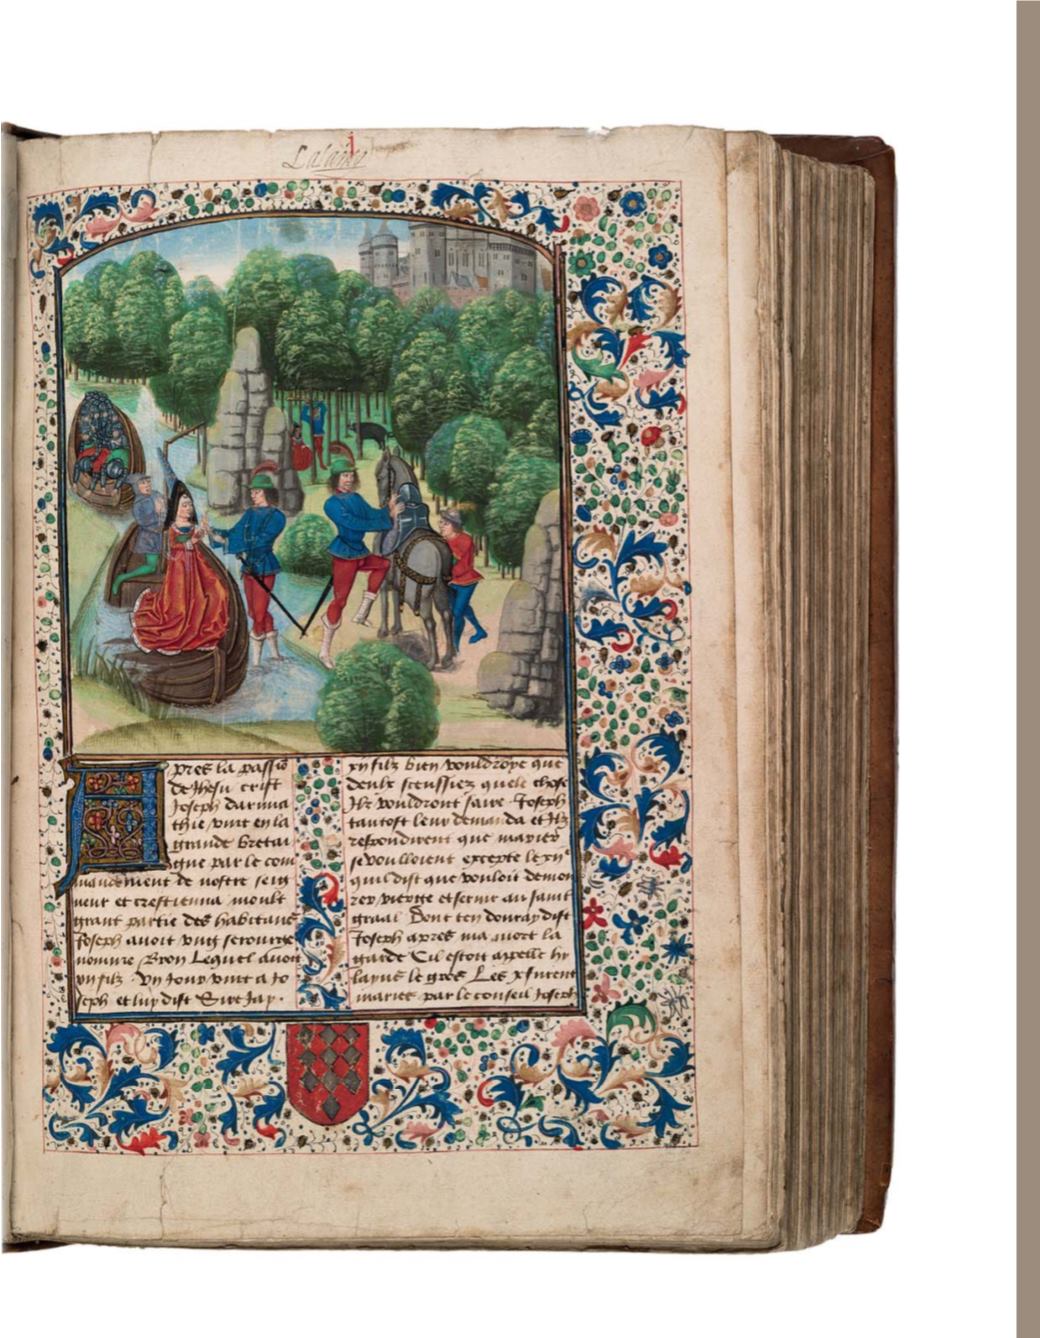 Lalaing
j
Apres la passiō
de Jhesu crist
Joseph darima
thie vint en la
grande bretai
gne par le com
mandement de nostre seig
neur et crestienna moult
grant partie des habitans
Joseph auoit vng serourge
nomme Bron Lequel auoit
xii filz . Vn Jour vint a Jo
seph et luy dist Sire Jay .
xii filz bien vouldroye que
deulx sceussiez quele chose
Ilz vouldront faire . Joseph
tantost leur demanda et Ilz
respondirent que marier
se vouloient excepte le xii
qui dist que vouloit demou
rer vierge et seruir au saint
graal Dont ten douray dist
Joseph apres ma mort la
garde Cil estoit appelle he
layns le gros Les xi furent
maries par le conseil Joseph